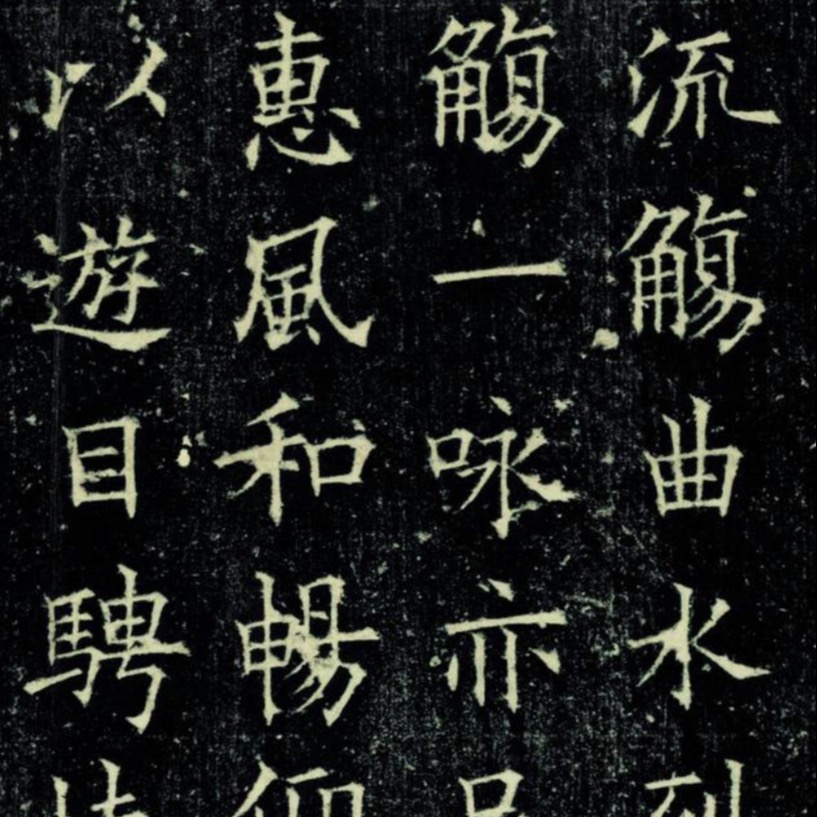 流觴曲水列
觴一咏亦足
惠風和暢仰
以遊目騁